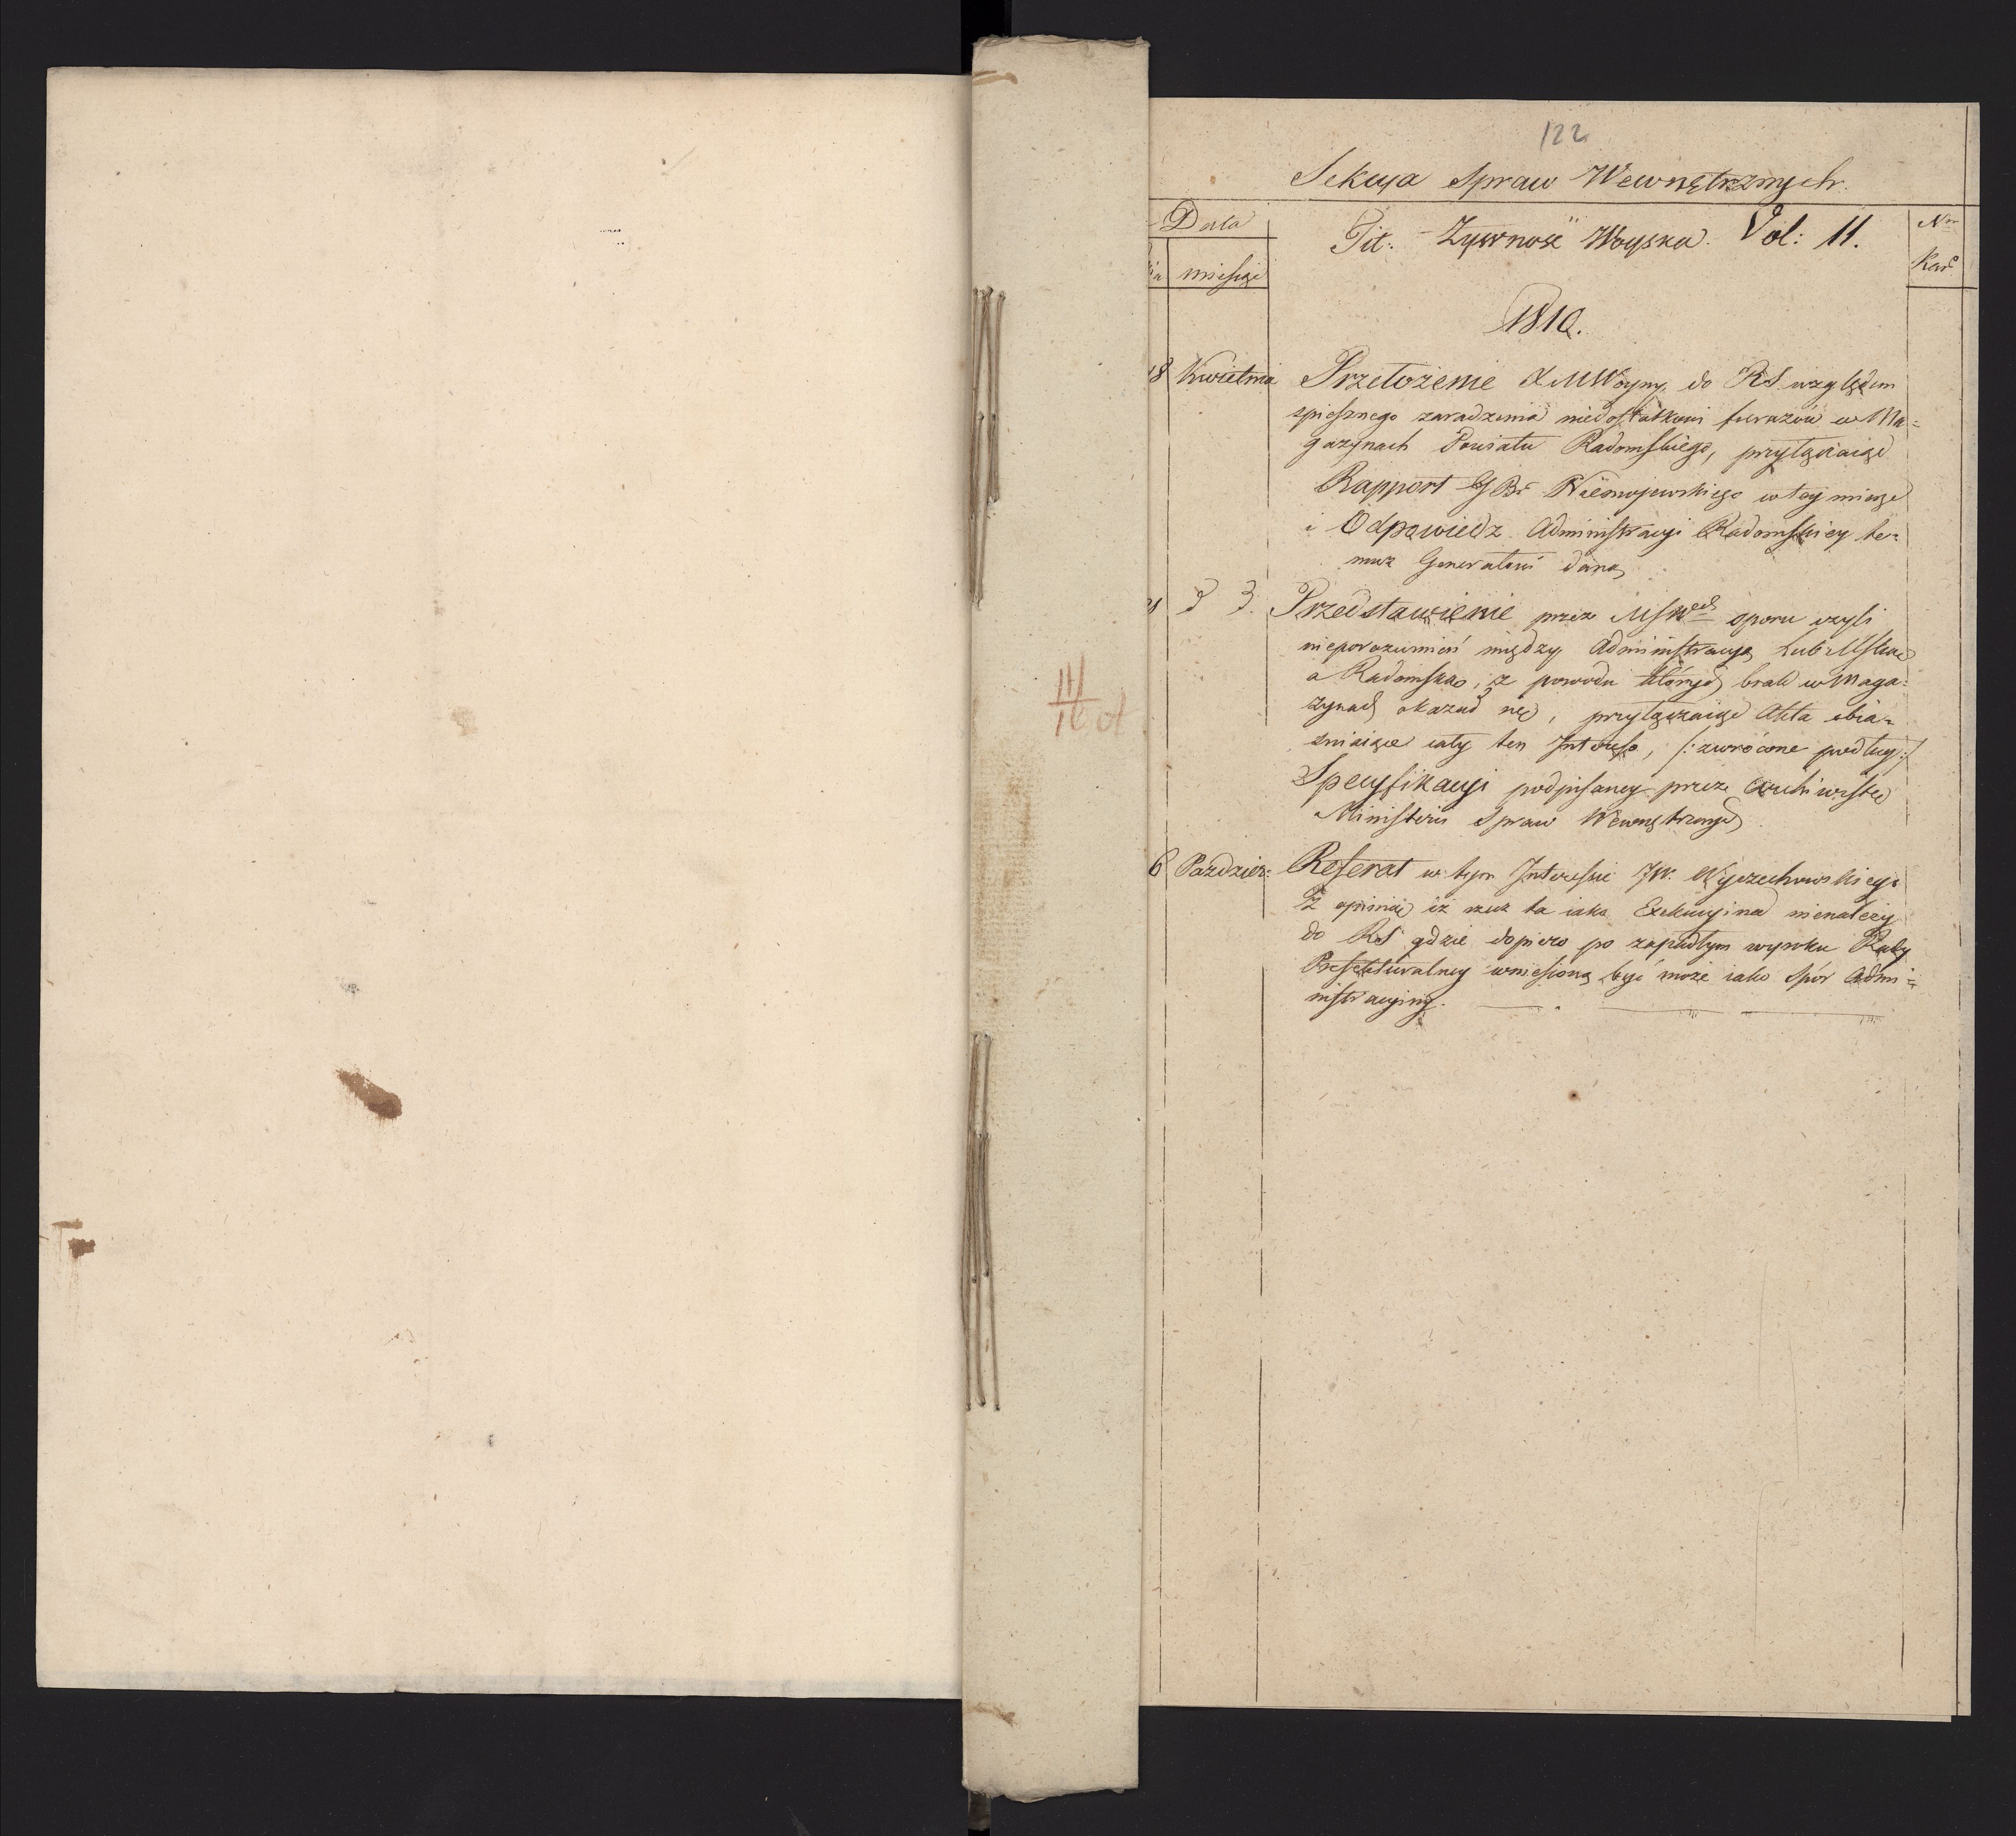 122
Sekcya Spraw Wewnętrznych.
Data
Tit: Zywność Woyska. Vol: 11.
Nr
Kart
miesiąc
1810.
18 Kwietnia Przełożenie XMWoyny do RS. względem
spiesznego zaradzenia niedostatkowi furażów w Ma=
gazynach Powiatu Radomskiego, przyłączaiąc
Rapport GBr Niemojewskiego w tey mierze
i Odpowiedz Administracyi Radomskiey te=
muż Generałowi dana,
Przedstawienie przez MSW sporu czyli
nieporozumień między Administracyą Lubelską
a Radomską, z powodu których brak w Maga=
zynach okazał się, przyłączaiąc Akta obia=
sniaiące cały ten Interess, /:zwrócone podług:/
Specyfikacyi podpisaney przez Archiwistę
Ministeri Spraw Wewnętrznych
6 Pazdzier: Referat w tym Interessie JW. Wyczechowskiego
Z opinią iż rzecz ta iako Exekucyina nienależy
do RS gdzie dopiero po zapadłym wyroku Rady
Prefekturalney wniesioną być może iako Spór Admi=
nistracyiny.